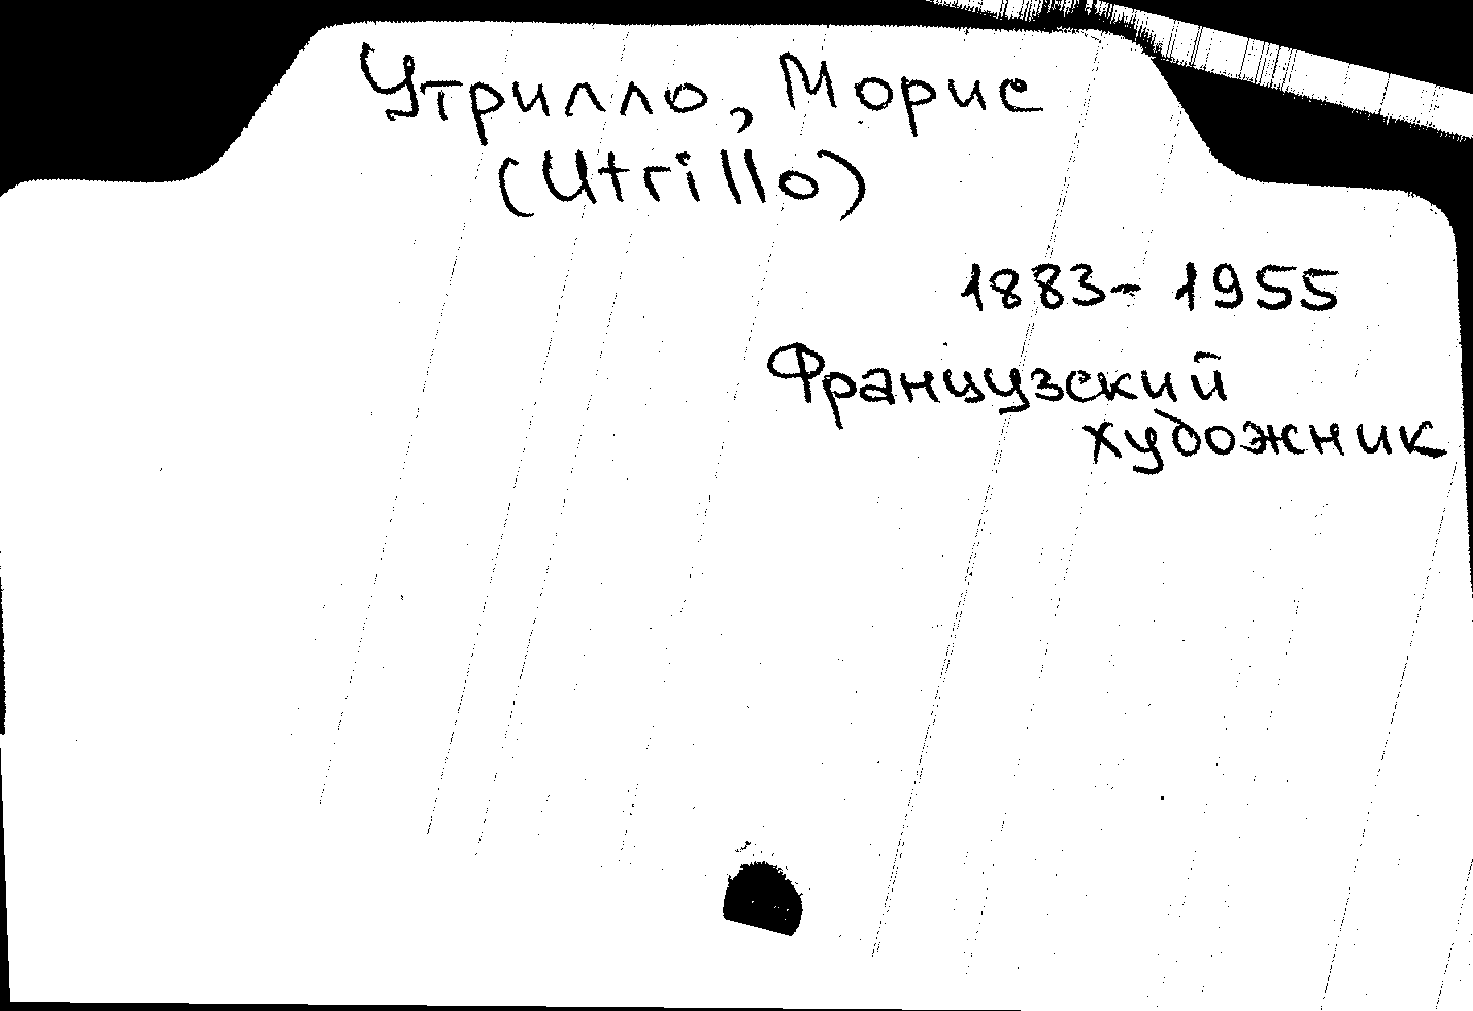 Утрилло, Морис
(Utrillo)
1883-1955
Французский
художник